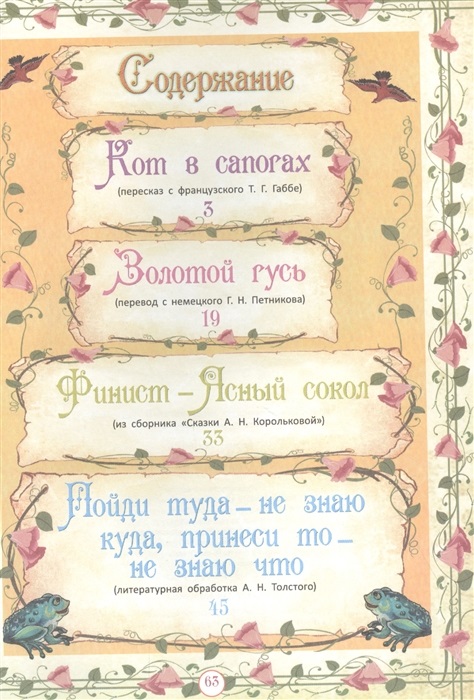 Содержание
Кот в сапогах
(пересказ с французского Т. Г. Габбе)
3
Золотой гусь
(перевод с немецкого Г. Н. Петникова)
19
Финист – Ясный сокол
(из сборника «Сказки А. Н. Корольковой»)
33
Пойди туда – не знаю
куда, принеси то –
не знаю что
(литературная обработка А. Н. Толстого)
45
63